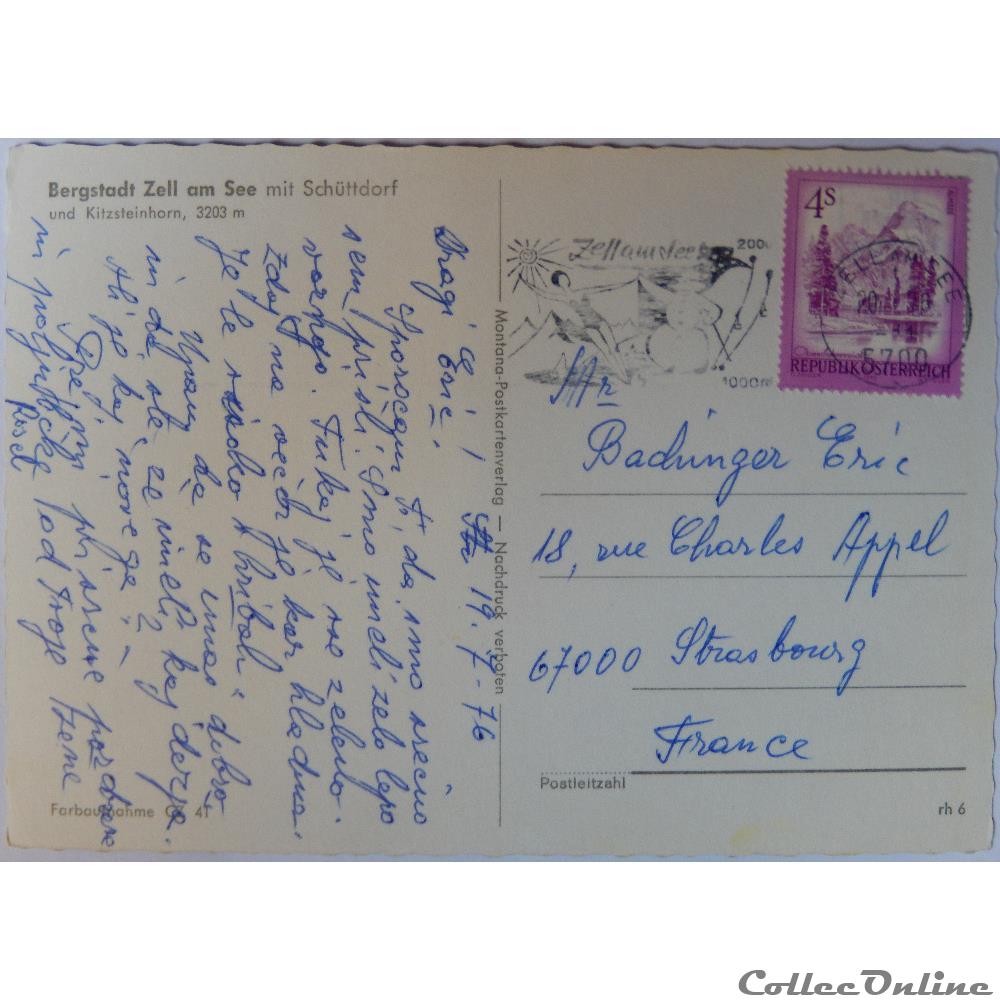 Bergstadt Zell am See mit Schüttdorf
und Kitzsteinhorn, 3203 m
19.7-76
Dragi Eric!
Sporočam ti da smo srečno
sem prišli. Smo imeli zelo lepo
vožnjo. Tukaj je vse zeleno.
Zdaj na večer je kar hladno.
Je le visoko v hribah.
Upam da se imaš dobro
in da ste že imeli kaj dežja.
Ali je kaj novega?
Prejmi prisrčne pozdrave
in poljubčke od tvoje žene
Farbaufnahme 41
Montana-Postkartenverlag — Nachdruck verboten
Zell am See
2000
1000m
4S
REPUBLIK ÖSTERREICH
ZELL AM SEE
5700
Mr
Badinger Eric
18, rue Charles Appel
67000 Strasbourg
France
Postleitzahl
rh 6
CollecOnline